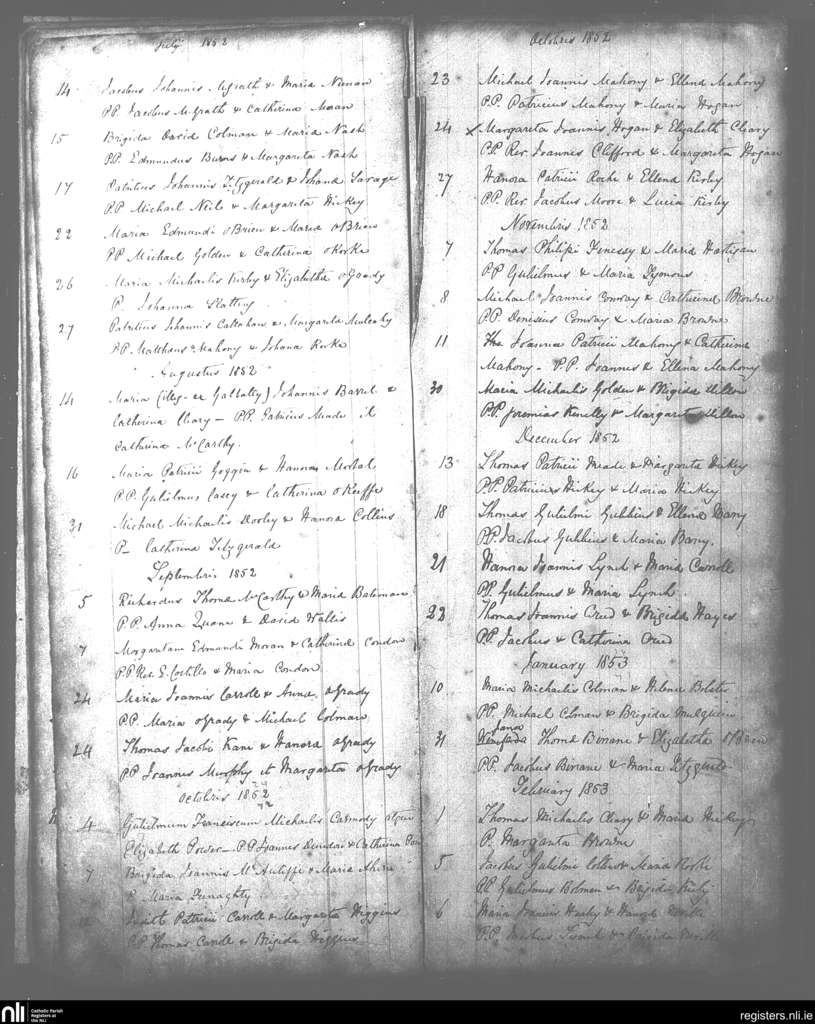 July 1852
14 Jacobus Johannis McGrath & Maria Noonan
P.P. Jacobus McGrath & Catherina
15 Brigida David Colman & Maria Nash
P.P. Edmundus Burns & Margarita Nash
17 Patritius Johannis Fitzgerald & Johana Savage
P.P. Michael Neil & Margarita Hickey
22 Maria Edmundi OBrien & Maria OBrien
P.P Michael Golden & Catherina
26 Maria Michaelis Kirby & Elizabetha OGrady
P. Johanna Slattery
27 Patritius Johannis Callahan & Margarita Mulcahy
P.P. Matthaus Mahony & Johana
Augustus 1852
14 Maria (illeg- ex ) Johannis Barrel &
Catherina Cleary - P.P. Patricius Meade &
Catherina McCarthy.
16 Maria Patricii Goggin & Hanora
P.P. Gulielmus Casey & Catherina OKeiffe
31 Michael Michaelis Dooley & Hanora Collins
P- Catherina Fitzgerald
Septembris 1852
5 Richardus Thomæ McCarthy & Maria Bateman
P.P Anna Quane & David Wallis
7 Margaretam Edmundi Moran & Catherina Condon
P.P Rev. E. Costello & Maria Condon
24 Maria Joannis Carroll & Anna OGrady
P.P. Maria OGrady & Michael Colman
24 Thomas Jacobi Kane & Hanora OGrady
P.P Joannis Murphy et Margarita OGrady
Octobris 1852
4 Gulielmum Franciscum Michaelis Carmody
Elizabeth Power - P.P Joannes & Catherina
7 Brigida Joannis McAuliffe & Maria Ahern
P. Maria
12 Judith Patricii Carroll & Margarita Higgins
P.P Thomas Carroll & Brigida Higgins
Octobris 1852
23 Michael Joannis Mahony & Ellena Mahony
P.P. Patricius Mahony & Maria Hogan
24 x Margareta Joannis Hogan & Elizabeth Cleary
P.P Rev. Joannes Clifford & Margarita Hogan
27 Hanora Patricii Roche & Ellena Kirby
P.P. Rev. Jacobus Moore & Lucia Kirby
Novembris 1852
7 Thomas Philipi Fenessy & Maria Hartigan
P.P Gulielmus & Maria Lyonous
8 Michael Joannis Conway & Catherina Browne
P.P Denisius Conway & Maria Browne
11 Joanna Patricii Mahony & Catherina
Mahony - P.P. Joannes & Ellena Mahony
30 Maria Michaelis Golden & Brigida
P.P. Jeremias & Margarita
December 1852
13 Thomas Patricii Meade & Margarita Hickey
P.P. Patricius Hickey & Maria Hickey
18 Thomas Gulielmi Gubbins & Ellena Barry
P.P. Jacobus Gubbins & Maria Barry.
21 Hanora Joannis Lynch & Maria Carroll
P.P. Gulielmus & Maria Lynch
22 Thomas Joannis Creed & Brigida Hayes
P.P. Jacobus & Catherina Creed
January 1853
10 Maria Michaelis Colman & Helena Bolster
P.P. Michael Colman & Brigida Mulqueen
31 Jana Thomæ Binane & Elizabetha OBrien
P.P. Jacobus Binane & Maria Fitzgerald
February 1853
1 Thomas Michaelis Cleary & Maria Hickey
P. Margarita Browne
5 Jacobus Gulielmi & Maria Roche
P.P. Gulielmus Colman & Brigida Kirby
6 Maria Joannis & Hanora
P.P. & Brigida
nli
Catholic Parish
Registers at
the NLI
registers.nli.ie